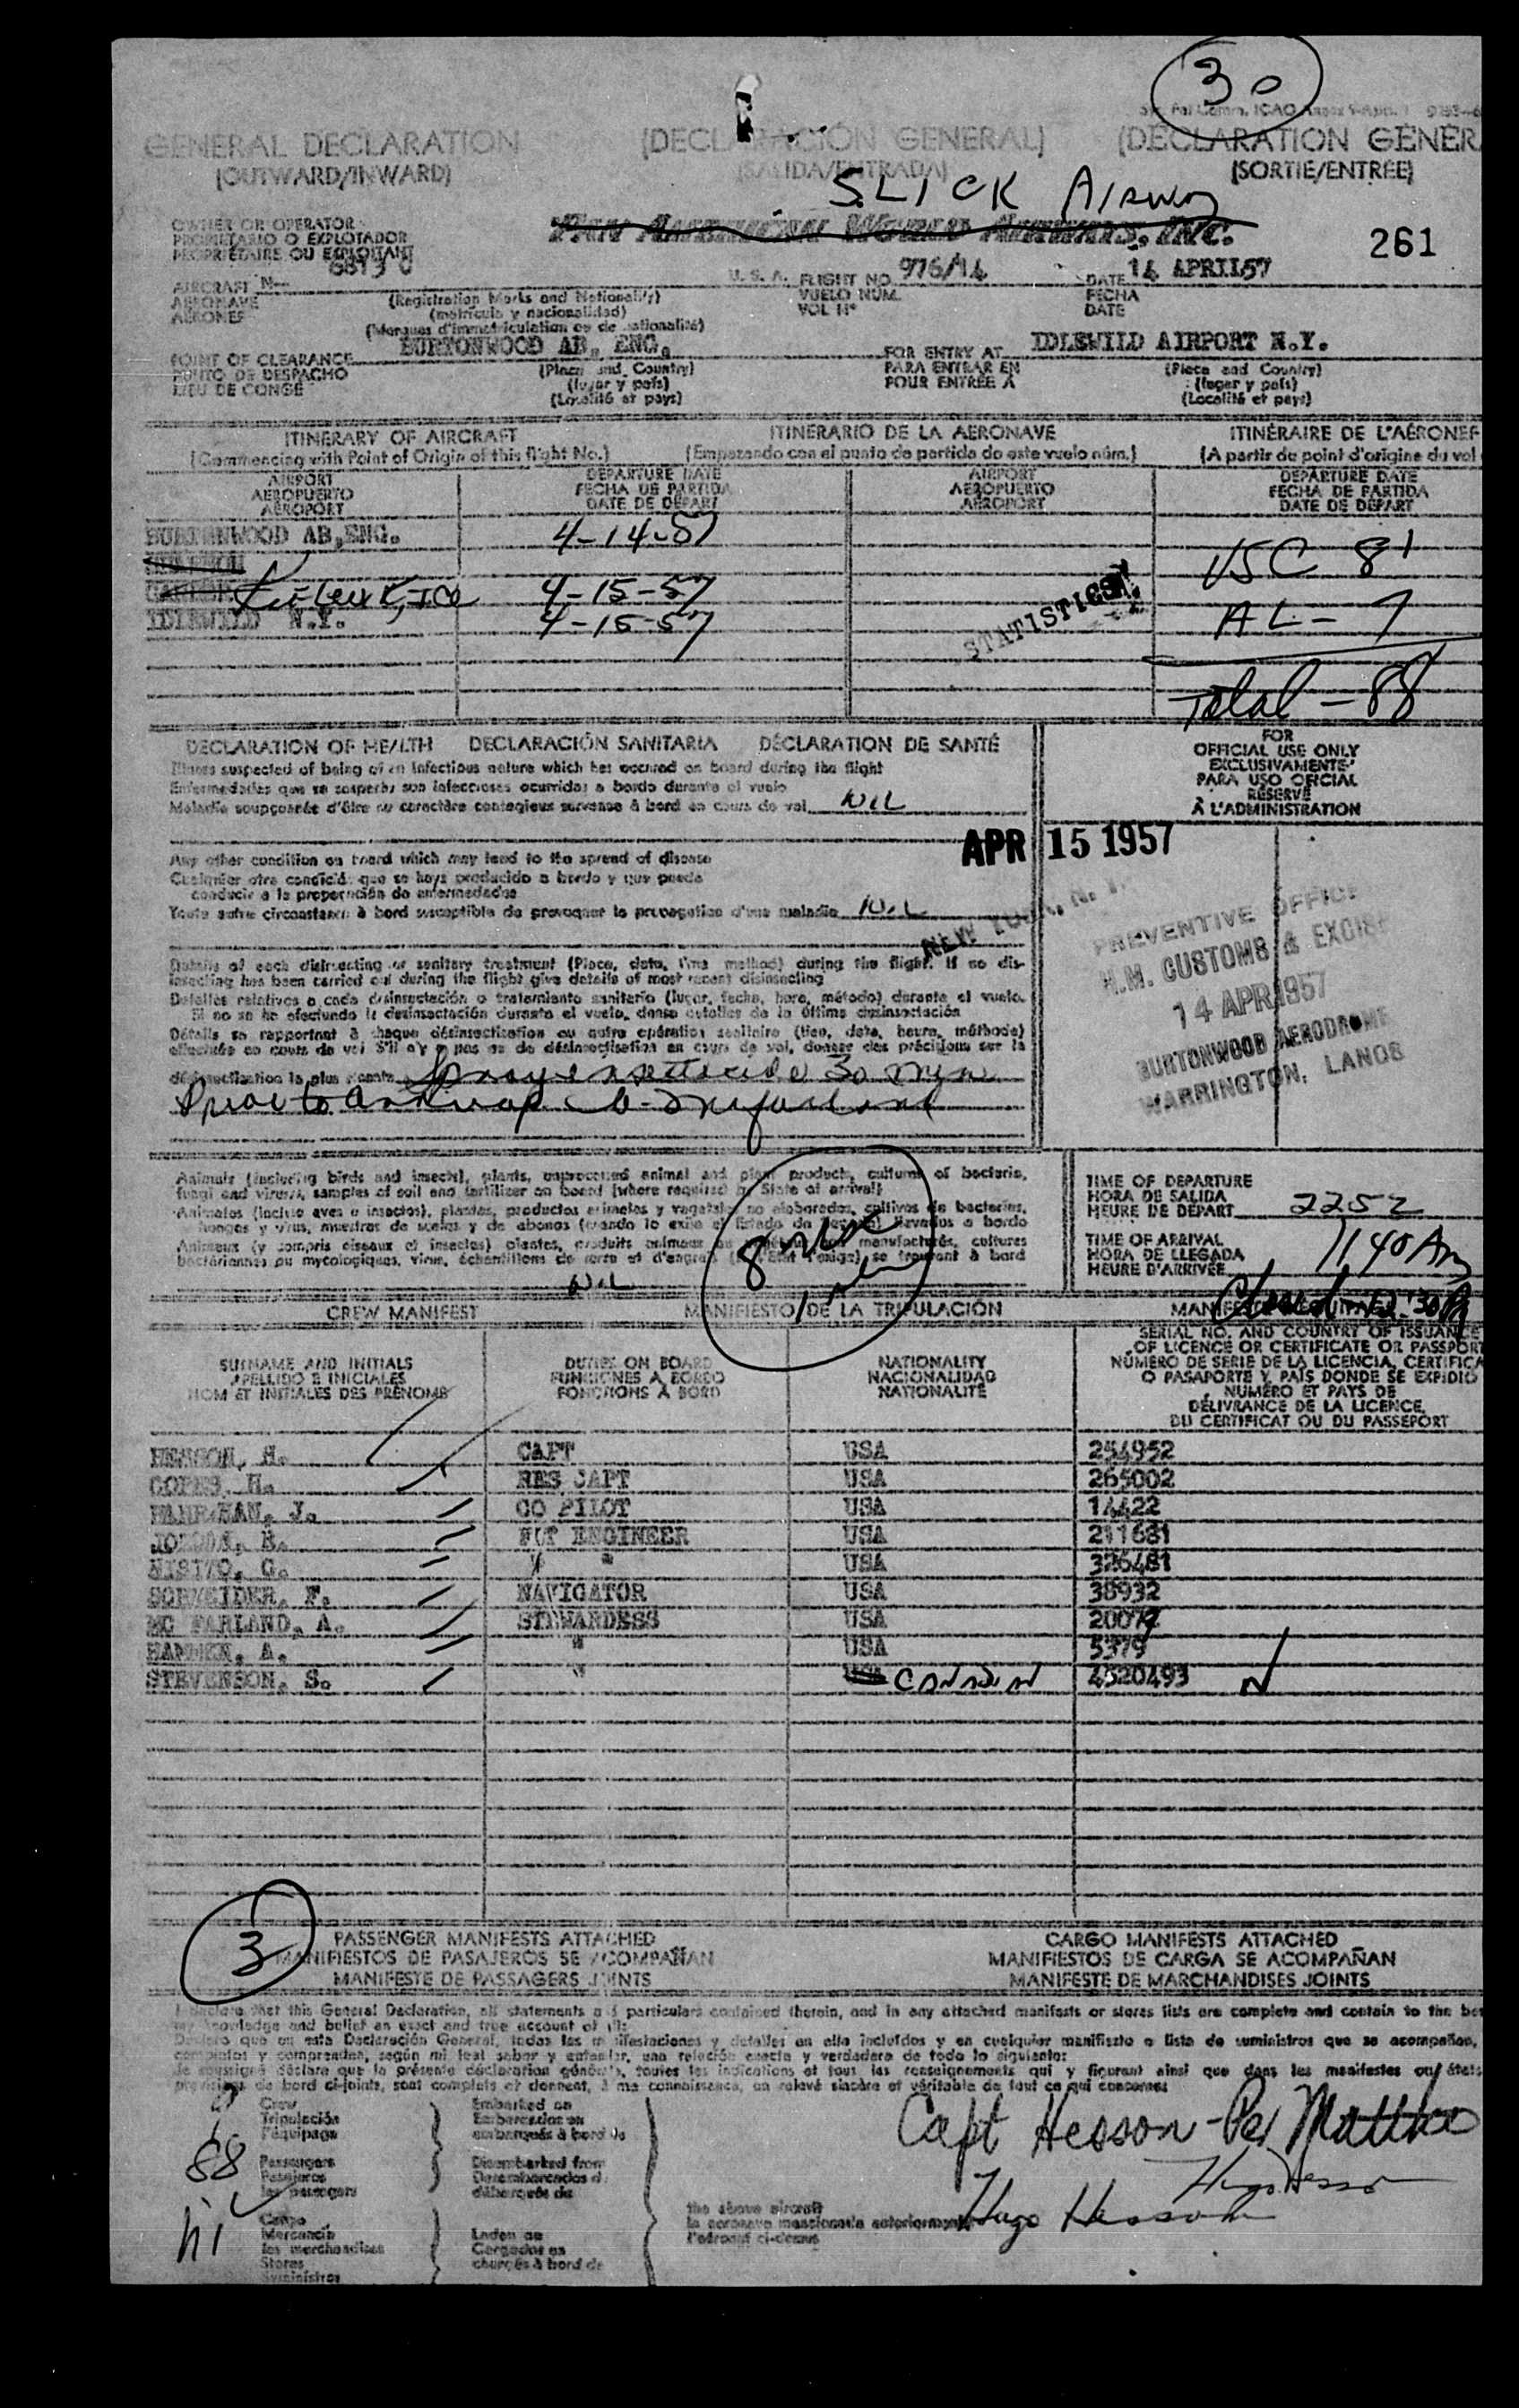 30
GENERAL DECLARATION (DECLARACIÓN GENERAL) (DECLARATION GENER
(OUTWARD/INWARD) (SALIDA/ENTRADA) (SORTIE/ENTRÉE)
SLICK Airways
PAN AMERICAN WORLD AIRWAYS, INC.
261
OWNER OR OPERATOR
PROPIETARIO O EXPLOTADOR
PROPRIÉTAIRE OU EXPLOITANT
AIRCRAFT N- U. S. A. FLIGHT NO. 976/14 DATE 14 APRIL 57
AERONAVE (Registration Marks and Nationality) VUELO NUM. FECHA
AÉRONEF (matrícula y nacionalidad) VOL Nº DATE
(Marques d'immatriculation et de nationalité)
POINT OF CLEARANCE BURTONWOOD AB, ENG. FOR ENTRY AT IDLEWILD AIRPORT N.Y.
PUNTO DE DESPACHO (Place and Country) PARA ENTRAR EN (Place and Country)
LIEU DE CONGÉ (lugar y país) POUR ENTRÉE À (lugar y país)
(Localité et pays) (Localité et pays)
ITINERARY OF AIRCRAFT ITINERARIO DE LA AERONAVE ITINÉRAIRE DE L'AÉRONEF
(Commencing with Point of Origin of this flight No.) (Empezando con el punto de partida de este vuelo núm.) (A partir du point d'origine du vol
AIRPORT DEPARTURE DATE AIRPORT DEPARTURE DATE
AEROPUERTO FECHA DE PARTIDA AEROPUERTO FECHA DE PARTIDA
AÉROPORT DATE DE DÉPART AÉROPORT DATE DE DÉPART
BURTONWOOD AB, ENG. 4-14-57
USC 81
Keflavik, Ice 4-15-57
IDLEWILD N.Y. 4-15-57
STATISTICS
AL - 7
Total - 88
DECLARATION OF HEALTH DECLARACIÓN SANITARIA DÉCLARATION DE SANTÉ
Illness suspected of being of an infectious nature which has occured on board during the flight
Enfermedades que se sospecha son infecciosas ocurridas a bordo durante el vuelo
Maladie soupçonnée d'être au caractère contagieux survenue à bord en cours de vol NIL
FOR
OFFICIAL USE ONLY
EXCLUSIVAMENTE
PARA USO OFICIAL
RÉSERVÉ
À L'ADMINISTRATION
APR 15 1957
NEW YORK, N. Y.
Any other condition on board which may lead to the spread of disease
Cualquier otra condición que se haya producido a bordo y que pueda
conducir a la propagación de enfermedades
Toute autre circonstance à bord susceptible de provoquer la propagation d'une maladie NIL
PREVENTIVE OFFICE
H.M. CUSTOMS & EXCISE
14 APR 1957
BURTONWOOD AERODROME
WARRINGTON, LANCS
Details of each disinsecting or sanitary treatment (Place, date, time method) during the flight. If no dis-
insecting has been carried out during the flight give details of most recent disinsecting
Detalles relativos a cada desinsectación o tratamiento sanitario (lugar, fecha, hora, método) durante el vuelo.
Si no se ha efectuado la desinsectación durante el vuelo, dense detalles de la última desinsectación
Détails se rapportant à chaque désinsectisation ou autre opération sanitaire (lieu, date, heure, méthode)
effectuée en cours de vol S'il n'y a pas eu de désinsectisation en cours de vol, donner des précisions sur la
désinsectisation la plus récente Spray insecticide 30 min
Prior to arrival
Animals (including birds and insects), plants, unprocessed animal and plant products, cultures of bacteria,
fungi and viruses, samples of soil and fertilizer on board (where required by State of arrival)
Animales (incluso aves e insectos), plantas, productos animales y vegetales no elaborados, cultivos de bacterias,
hongos y virus, muestras de suelos y de abonos (cuando lo exija el Estado de llegada) llevados a bordo
Animaux (y compris oiseaux et insectes) plantes, produits animaux ou végétaux non manufacturés, cultures
bactériennes ou mycologiques, virus, échantillons de terre et d'engrais (si l'État l'exige) se trouvant à bord
NIL
TIME OF DEPARTURE
HORA DE SALIDA
HEURE DE DÉPART 2252
TIME OF ARRIVAL
HORA DE LLEGADA
HEURE D'ARRIVÉE 1140 Am
CREW MANIFEST MANIFIESTO DE LA TRIPULACIÓN
SURNAME AND INITIALS
APELLIDO E INICIALES
NOM ET INITIALES DES PRÉNOMS
DUTIES ON BOARD
FUNCIONES A BORDO
FONCTIONS À BORD
NATIONALITY
NACIONALIDAD
NATIONALITÉ
SERIAL NO. AND COUNTRY OF ISSUANCE
OF LICENCE OR CERTIFICATE OR PASSPORT
NÚMERO DE SERIE DE LA LICENCIA, CERTIFICA
O PASAPORTE Y PAÍS DONDE SE EXPIDIÓ
NUMÉRO ET PAYS DE
DÉLIVRANCE DE LA LICENCE,
DU CERTIFICAT OU DU PASSEPORT
HESSON, H. CAPT USA 254952
H. RES CAPT USA 265002
J. CO PILOT USA 14422
FLT ENGINEER USA 211681
C. " " USA 326481
SCHNEIDER, F. NAVIGATOR USA 38932
MC FARLAND, A. STEWARDESS USA 20072
A. " USA 5379
STEVENSON, S. " CANADIAN 4520493
3
PASSENGER MANIFESTS ATTACHED CARGO MANIFESTS ATTACHED
MANIFIESTOS DE PASAJEROS SE ACOMPAÑAN MANIFIESTOS DE CARGA SE ACOMPAÑAN
MANIFESTE DE PASSAGERS JOINTS MANIFESTE DE MARCHANDISES JOINTS
I declare that this General Declaration, all statements and particulars contained therein, and in any attached manifests or stores lists are complete and contain to the bes
my knowledge and belief an exact and true account of all:
Declaro que en esta Declaración General, todas las manifestaciones y detalles en ella incluídos y en cualquier manifiesto o lista de suministros que se acompañan,
completos y comprenden, según mi leal saber y entender, una relación exacta y verdadera de todo lo siguiente:
Je soussigné déclare que la présente déclaration générale, toutes les indications et tous les renseignements qui y figurent ainsi que dans les manifestes ou états
provisions de bord ci-joints, sont complets et donnent, à ma connaissance, un relevé sincère et véritable de tout ce qui concerne:
Crew Embarked on
Tripulación Embarcados en
l'équipage embarqués à bord de
Capt Hesson
88 Passengers Disembarked from
Pasajeros Desembarcados de
les passagers débarqués de
the above aircraft
la aeronave mencionada anteriormente
l'aéronef ci-dessus
Hugo Hesson
Cargo
Mercancía Laden on
les marchandises Cargados en
Stores chargés à bord de
Suministros